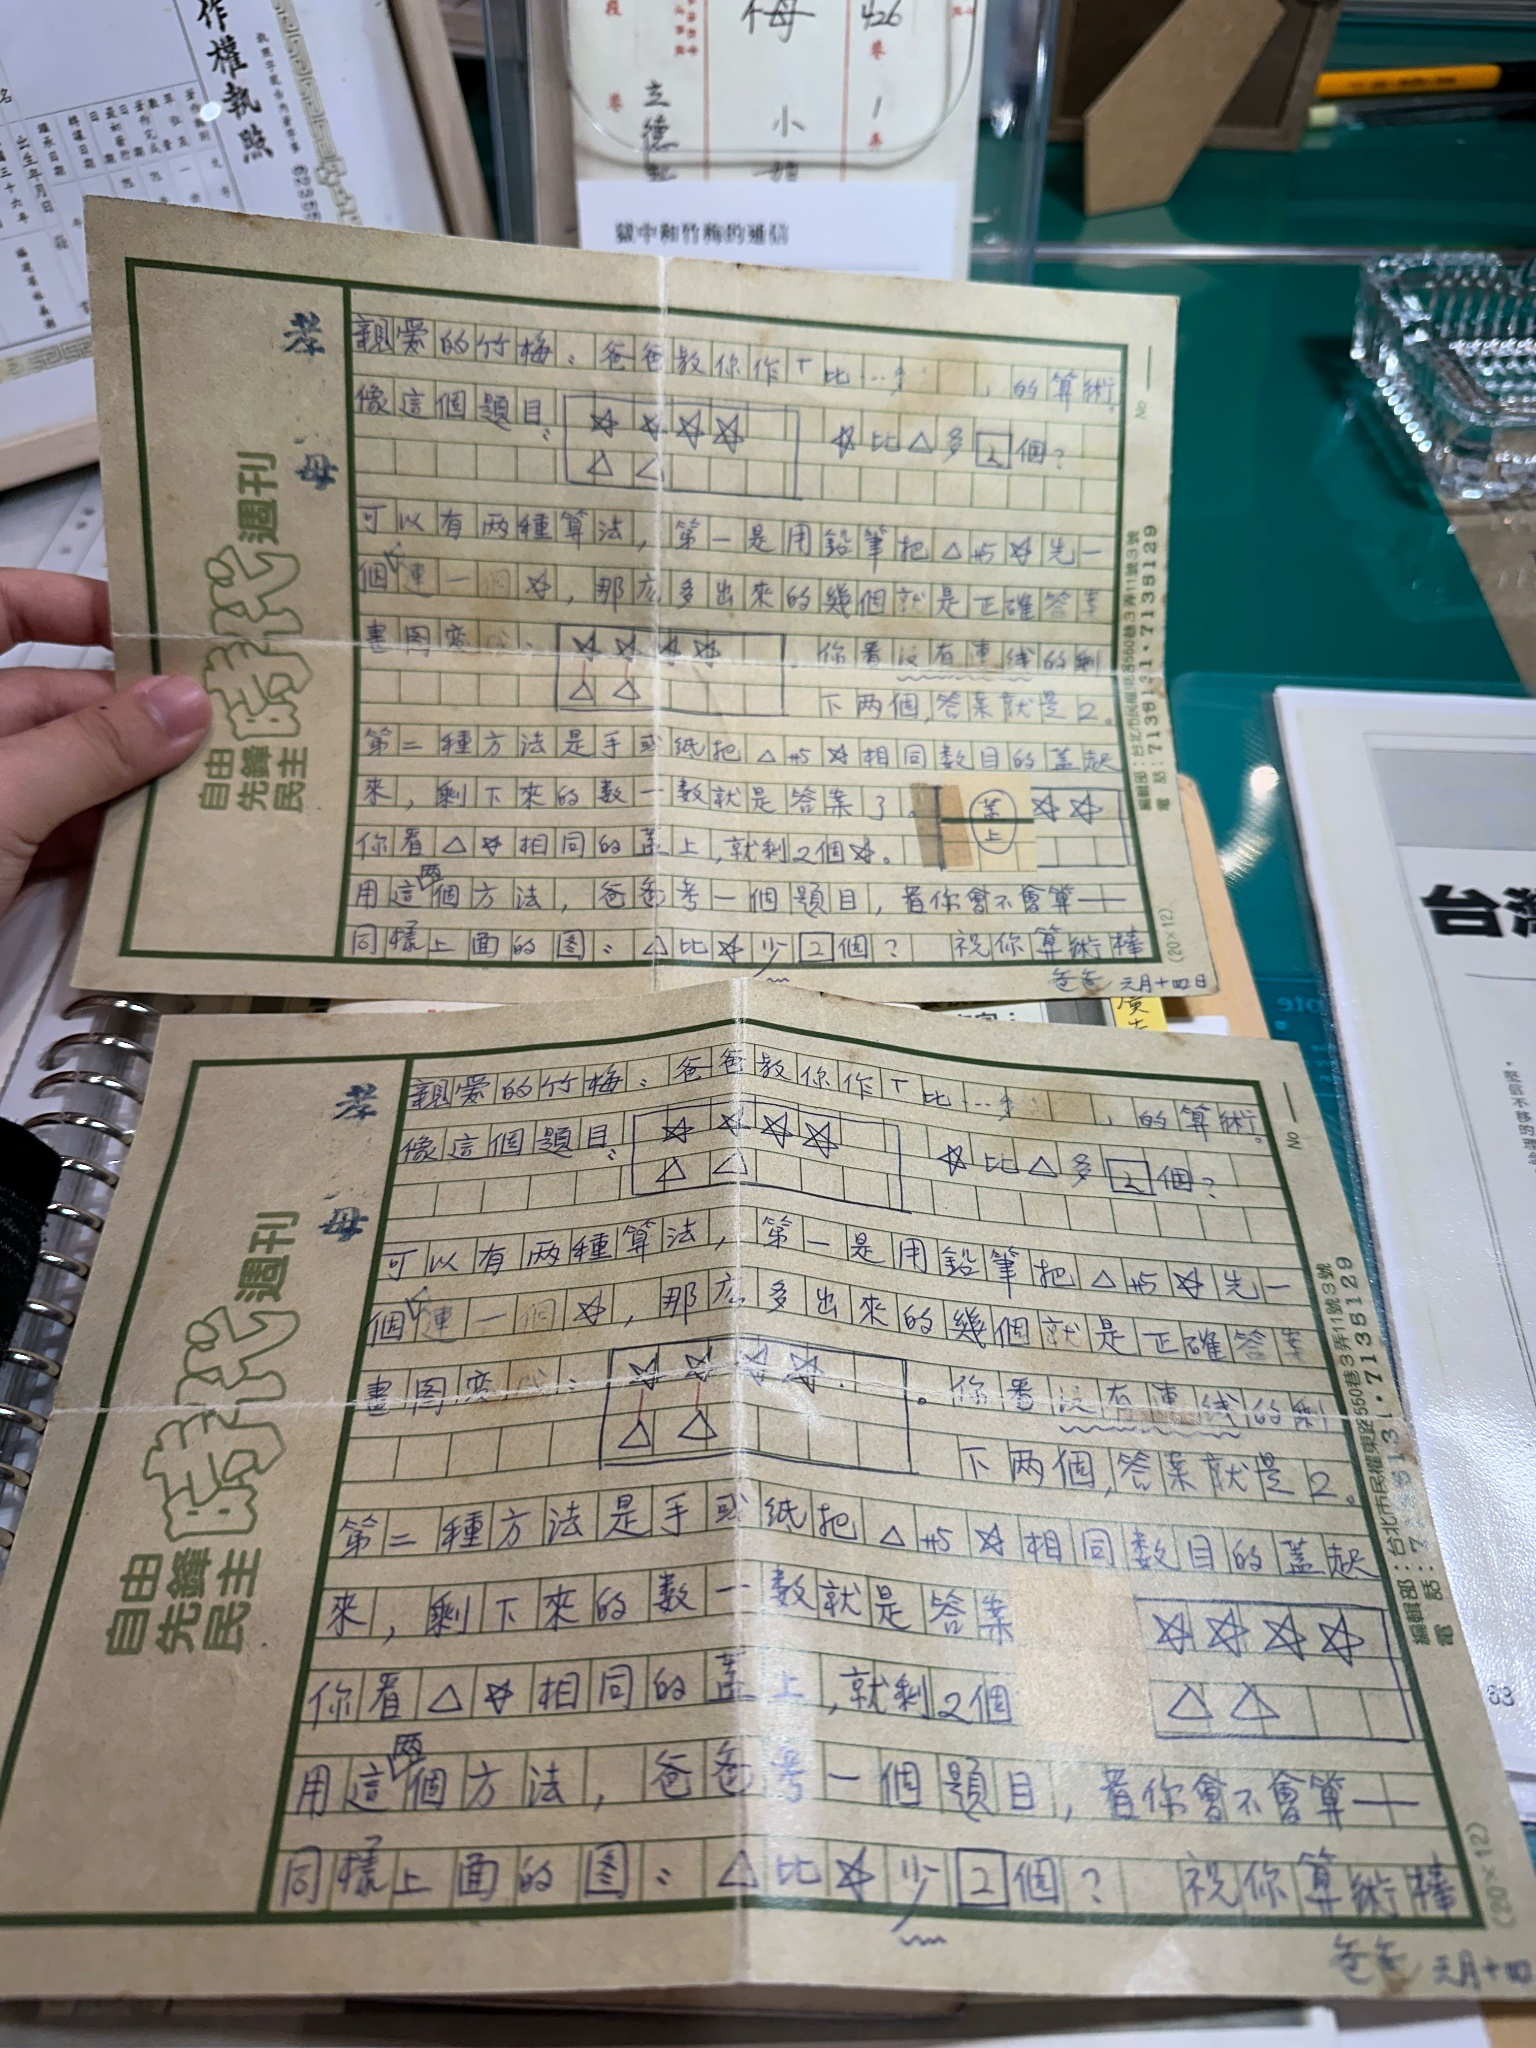 作權執照
426
卷
1
小
立德
獄中和竹梅的通信
親愛的竹梅：爸爸教你作「比…多　　，的算術。
像這個題目： ☆☆☆☆ ☆比△多2個？
△△
可以有两種算法，第一是用鉛筆把△和☆先一
個△連一個☆，那麼多出來的幾個就是正確答案
畫图變成： ☆☆☆☆ 。你看没有連線的剩
△△ 下两個，答案就是2。
第二種方法是手或纸把△和☆相同数目的蓋起
來，剩下來的数一数就是答案了。 蓋上 ☆☆
你看△☆相同的蓋上，就剩2個☆。
用這两個方法，爸爸考一個題目，看你會不會算——
同樣上面的图：△比☆少2個？ 祝你算術棒
爸爸 元月十四日
孝
母
自由
時代
週刊
先鋒
民主
No
編輯部：台北市民權東路550巷3弄11號3號
電話：7138131·7135129
(20×12)
親愛的竹梅：爸爸教你作「比…多　　，的算術。
像這個題目： ☆☆☆☆ ☆比△多2個？
△△
可以有两種算法，第一是用鉛筆把△和☆先一
個△連一個☆，那麼多出來的幾個就是正確答案
畫图變成： ☆☆☆☆ 。你看没有連線的剩
△△ 下两個，答案就是2。
第二種方法是手或纸把△和☆相同数目的蓋起
來，剩下來的数一数就是答案 ☆☆☆☆
你看△☆相同的蓋上，就剩2個 △△
用這两個方法，爸爸考一個題目，看你會不會算——
同樣上面的图：△比☆少2個？ 祝你算術棒
爸爸 元月十四
孝
母
自由
時代
週刊
先鋒
民主
No
(20×12)
台灣
63